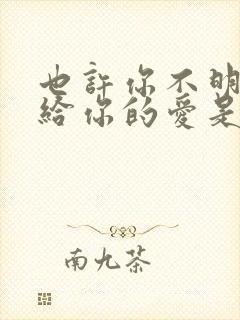 也許你不明
給你的愛是
南九茶